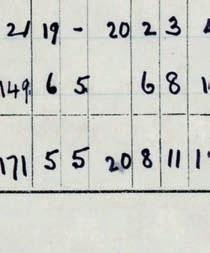 21 19 - 20 2 3
149 6 5 6 8
171 5 5 20 8 11